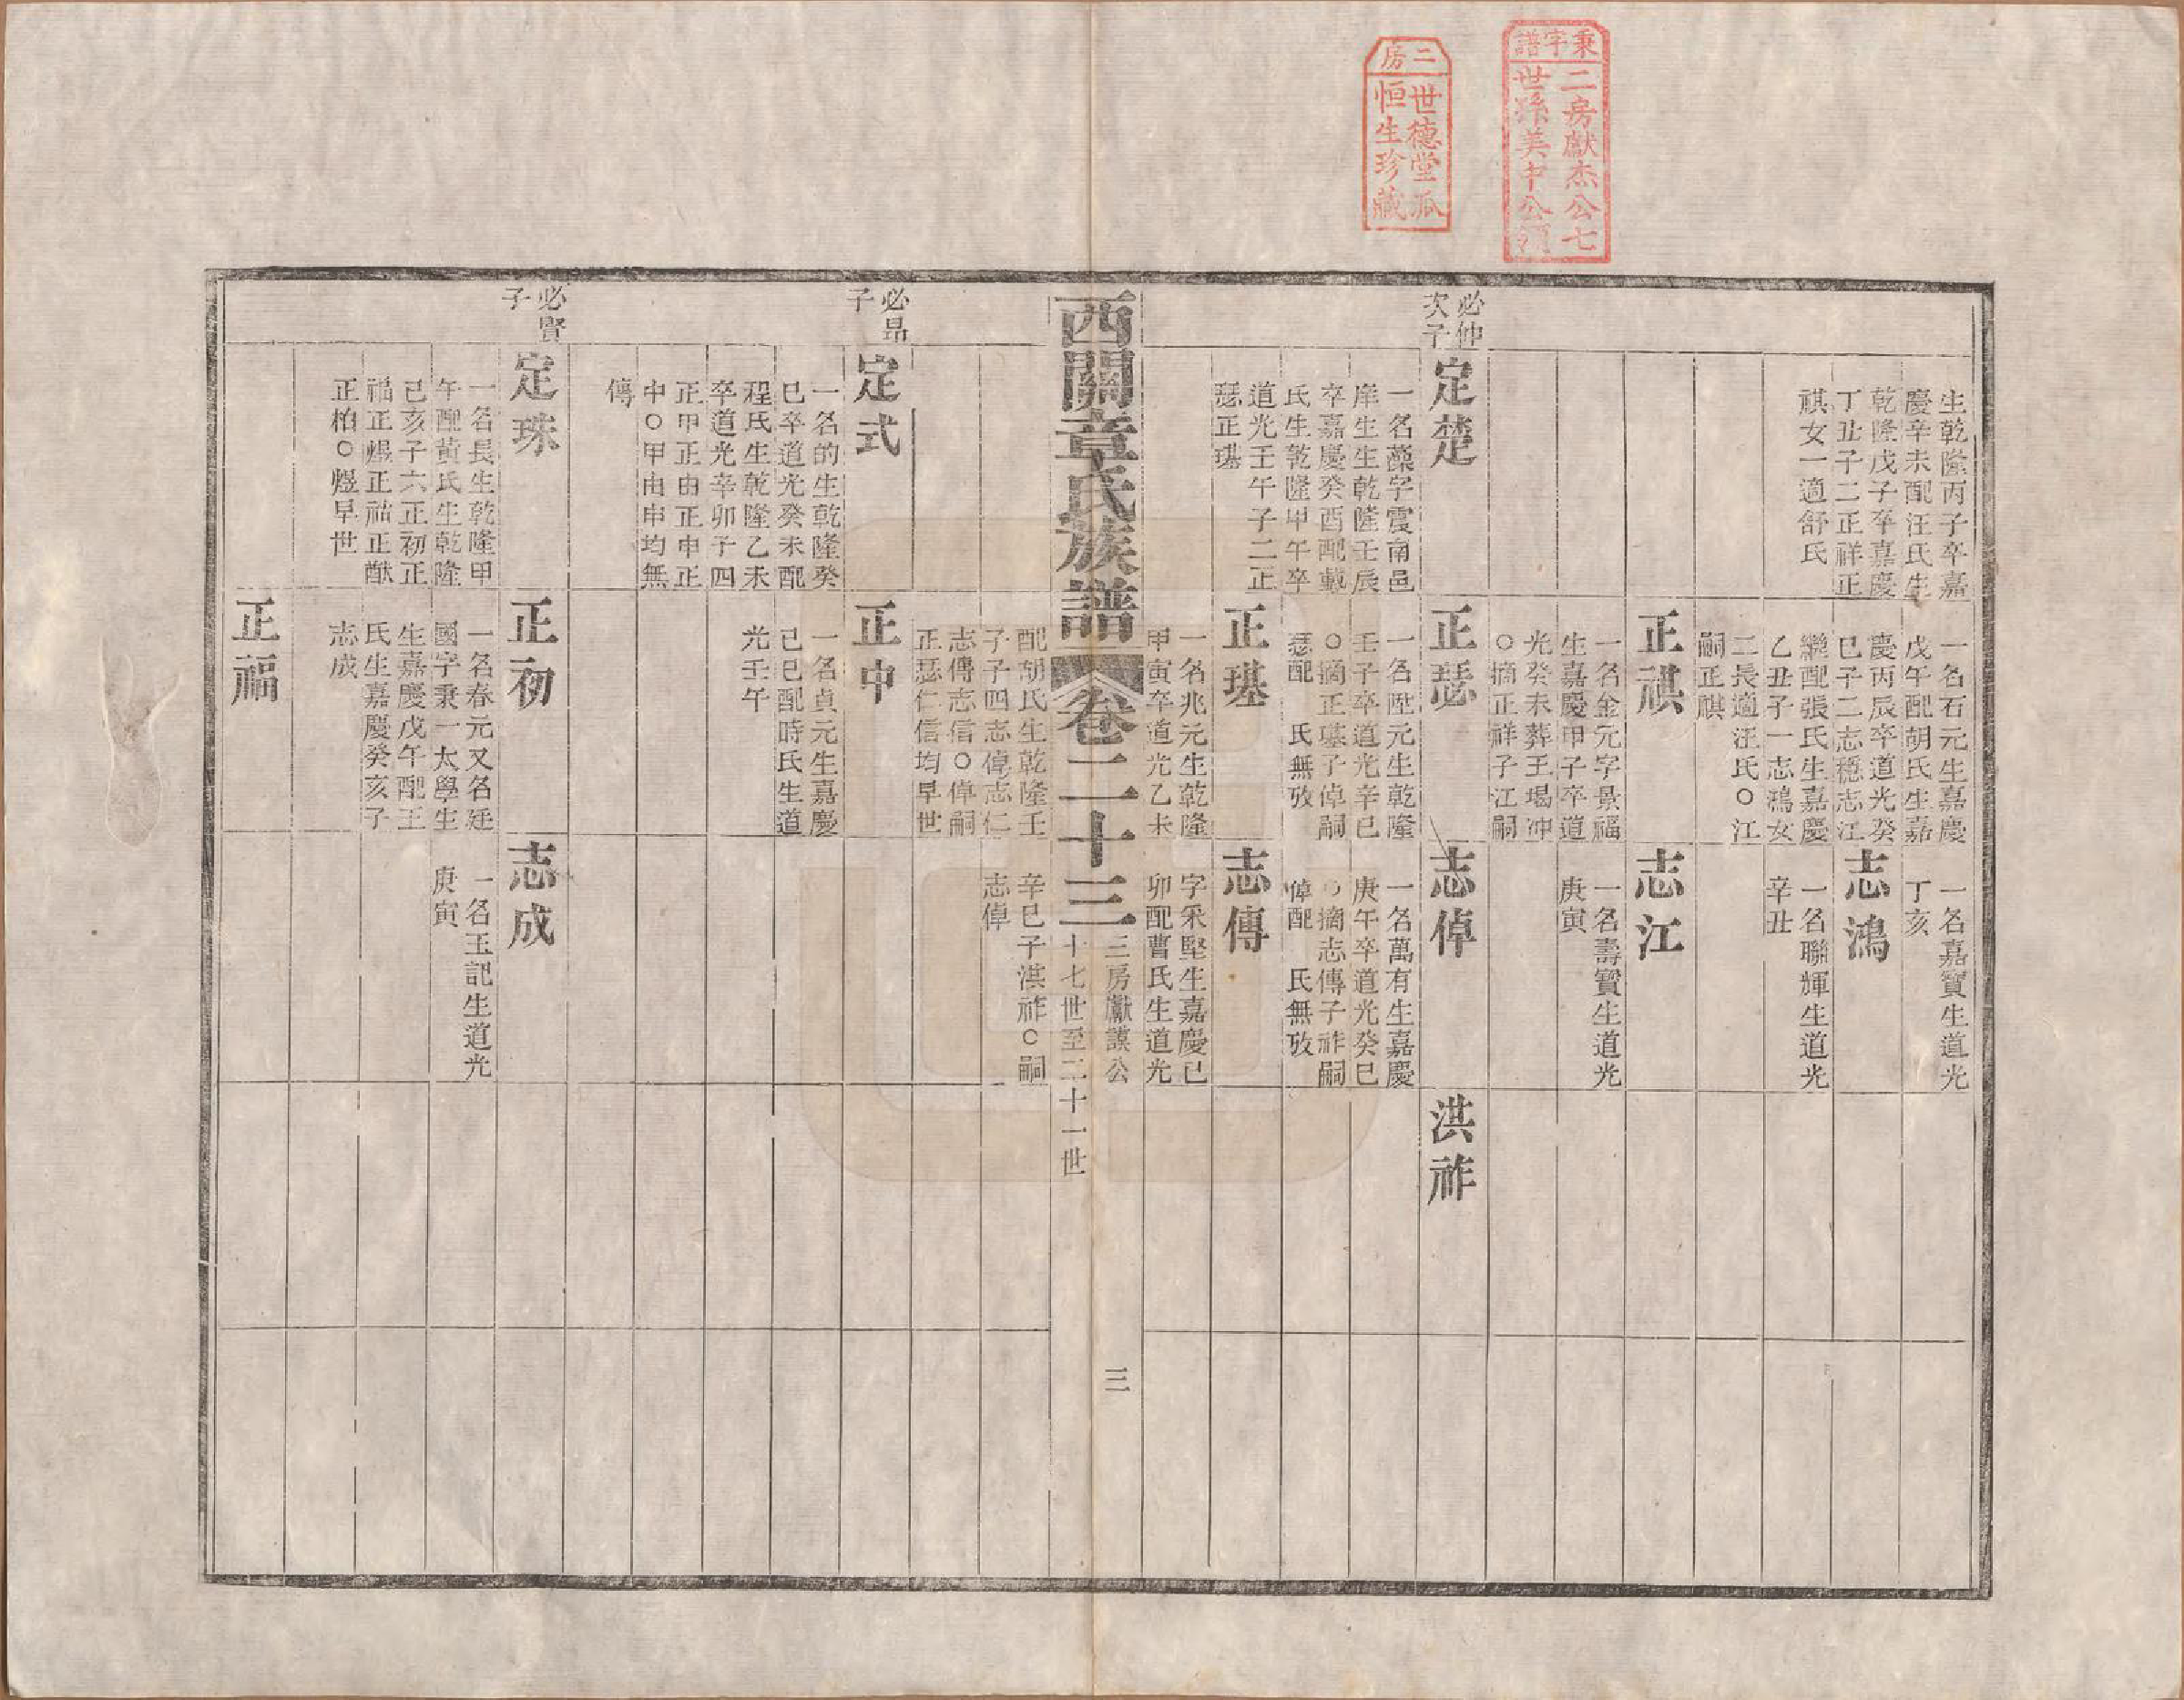 秉字譜
二房獻杰公七
世孫美中公領
二房
世德堂派
恒生珍藏
生乾隆丙子卒嘉
慶辛未配汪氏生
乾隆戊子卒嘉慶
丁丑子二正祥正
祺女一適舒氏
一名石元生嘉慶
戊午配胡氏生嘉
慶丙辰卒道光癸
巳子二志穩志江
繼配張氏生嘉慶
乙丑子一志鴻女
二長適汪氏○江
嗣正祺
一名嘉寶生道光
丁亥
志鴻
一名聯輝生道光
辛丑
正祺
一名金元字景福
生嘉慶甲子卒道
光癸未葬王塲冲
○摘正祥子江嗣
志江
一名壽寶生道光
庚寅
必仲
次子
定楚
一名藻字震南邑
庠生生乾隆壬辰
卒嘉慶癸酉配戴
氏生乾隆甲午卒
道光壬午子二正
瑟正璂
正瑟
一名陞元生乾隆
壬子卒道光辛巳
○摘正璂子倬嗣
瑟配　氏無攷
志倬
一名萬有生嘉慶
庚午卒道光癸巳
○摘志傳子祚嗣
倬配　氏無攷
洪祚
正璂
一名兆元生乾隆
甲寅卒道光乙未
配胡氏生乾隆壬
子子四志倬志仁
志傳志信○倬嗣
正瑟仁信均早世
志傳
字采堅生嘉慶己
卯配曹氏生道光
辛巳子洪祚○嗣
志倬
西關章氏族譜
卷二十三
三房獻謨公
十七世至二十一世
三
必昂
子
定式
一名的生乾隆癸
巳卒道光癸未配
程氏生乾隆乙未
卒道光辛卯子四
正甲正由正申正
中○甲由申均無
傳
正中
一名貞元生嘉慶
己巳配時氏生道
光壬午
必賢
子
定珠
一名長生乾隆甲
午配黃氏生乾隆
己亥子六正初正
福正煜正祜正猷
正柏○煜早世
正初
一名春元又名廷
國字秉一太學生
生嘉慶戊午配王
氏生嘉慶癸亥子
志成
志成
一名玉記生道光
庚寅
正福